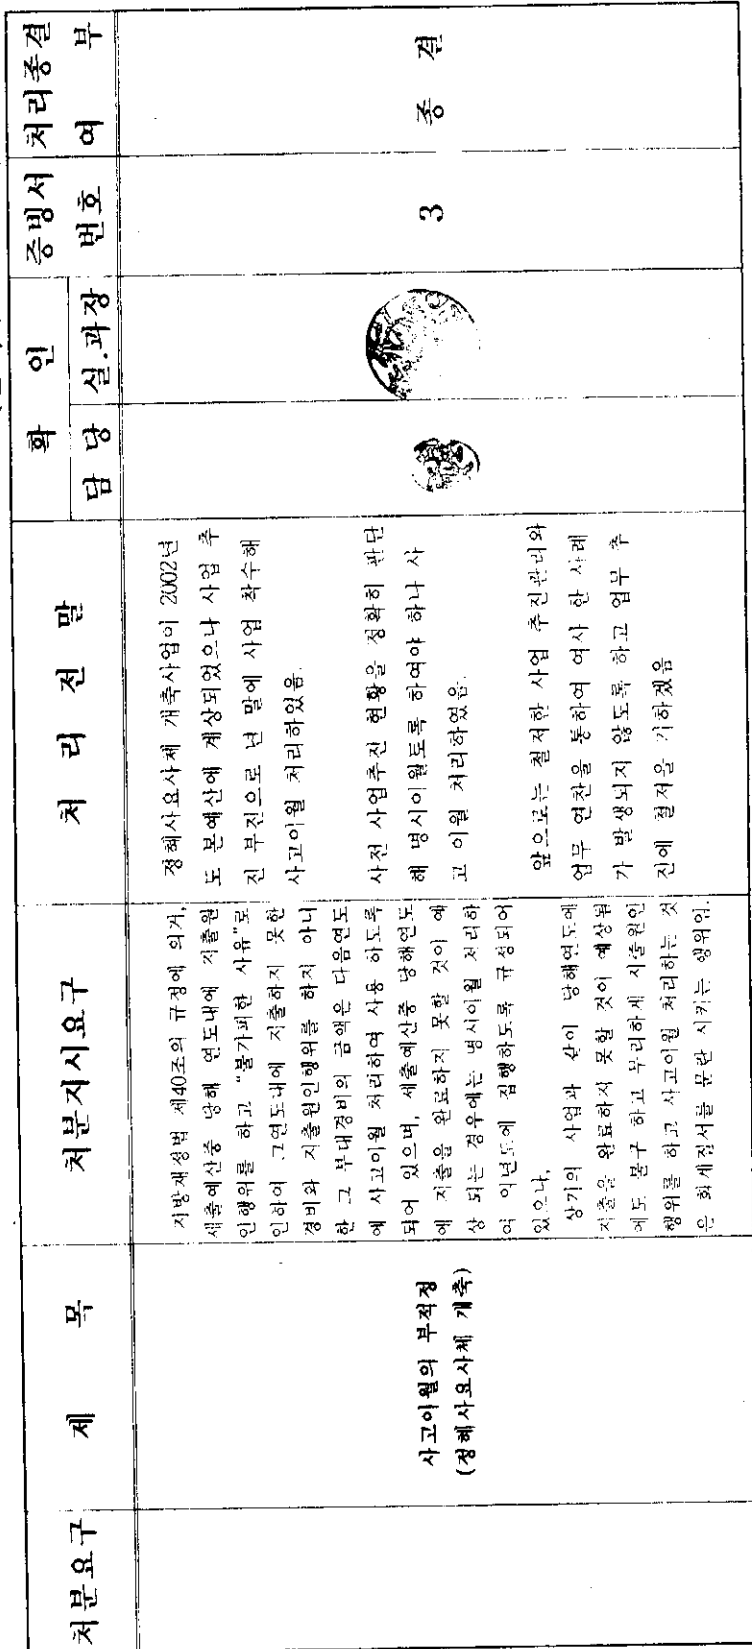 처분요구
제 목
처분지시요구
처 리 전 말
확 인
담 당
실.과장
증빙서
번호
처리종결
여 부
사고이월의 부적정
(정혜사요사채 개축)
지방재정법 제40조의 규정에 의거,
세출예산중 당해 연도내에 지출원
인행위를 하고 "불가피한 사유"로
인하여 그연도내에 지출하지 못한
경비와 지출원인행위를 하지 아니
한 그 부대경비의 금액은 다음연도
에 사고이월 처리하여 사용 하도록
되어 있으며, 세출예산중 당해연도
에 지출을 완료하지 못할 것이 예
상 되는 경우에는 명시이월 처리하
여 익년도에 집행하도록 규정되어
있으나,
상기의 사업과 같이 당해연도에
지출을 완료하지 못할 것이 예상됨
에도 불구 하고 무리하게 지출원인
행위를 하고 사고이월 처리하는 것
은 회계질서를 문란 시키는 행위임.
정혜사요사채 개축사업이 2002년
도 본예산에 계상되었으나 사업 추
진 부진으로 년 말에 사업 착수해
사고이월 처리하였음.
사전 사업추진 현황을 정확히 판단
해 명시이월도록 하여야 하나 사
고 이월 처리하였음.
앞으로는 철저한 사업 추진관리와
업무 연찬을 통하여 여사 한 사례
가 발생되지 않도록 하고 업무 추
진에 철저를 기하겠음
3
종 결